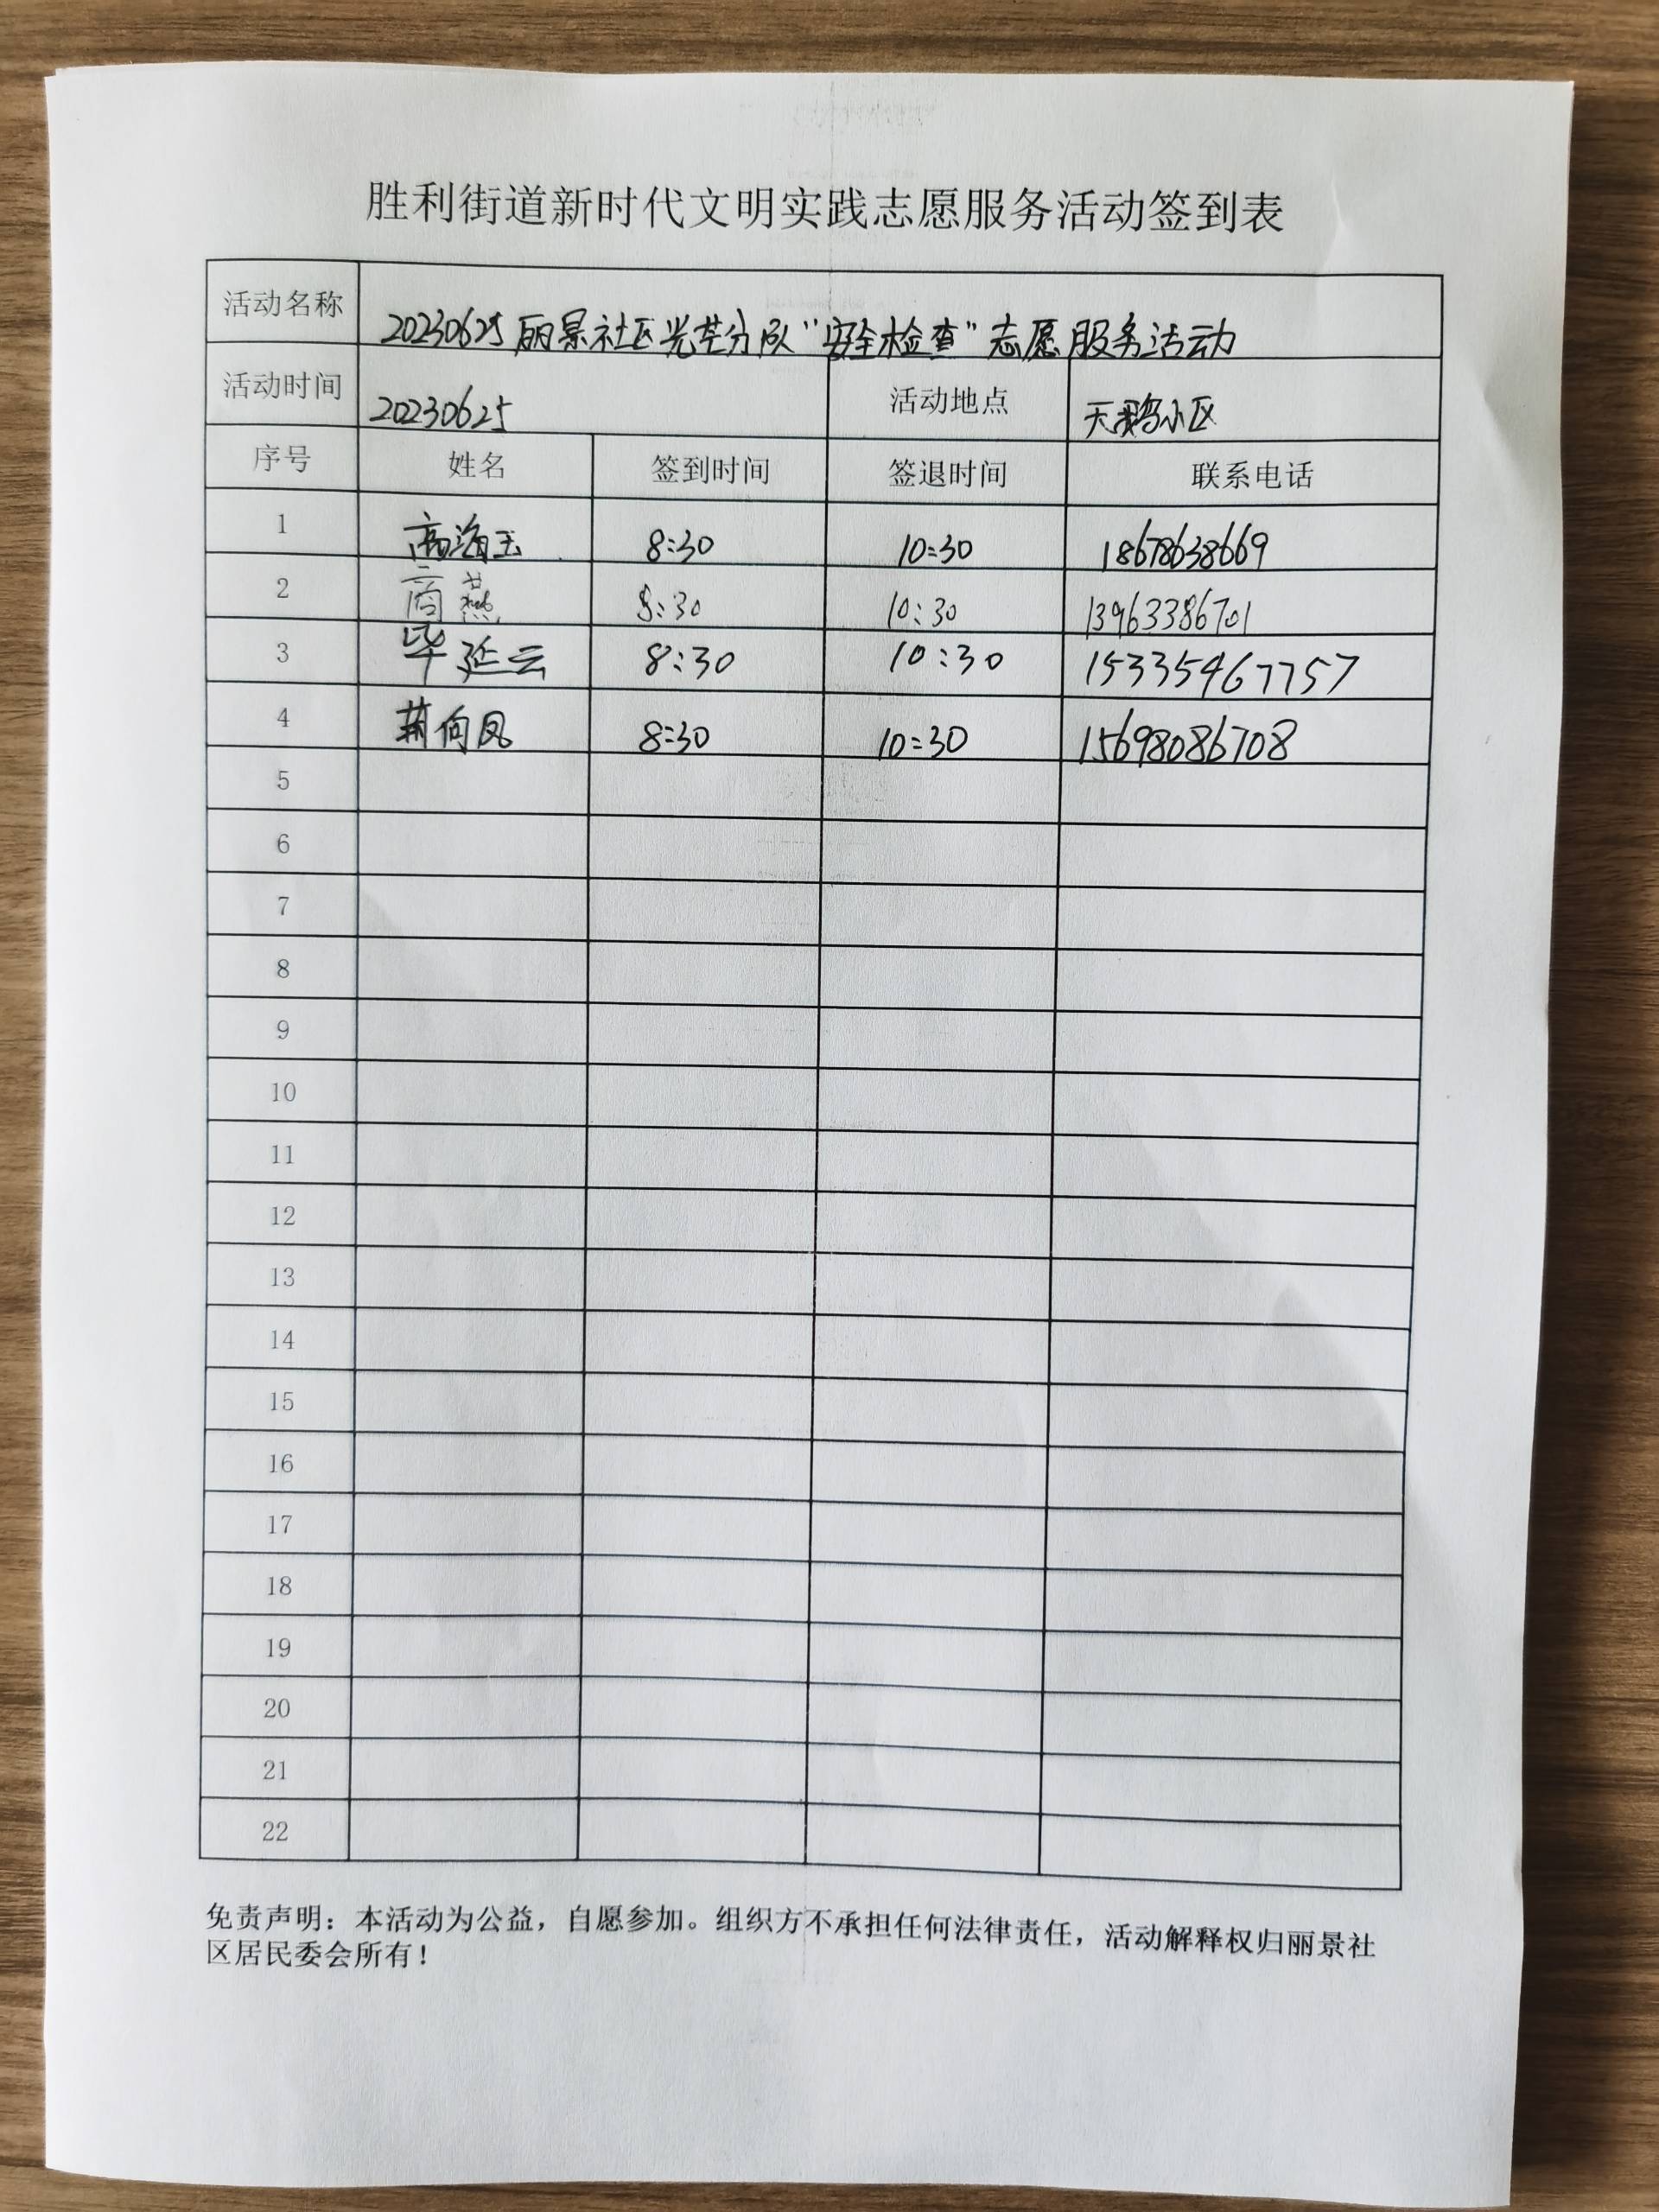 胜利街道新时代文明实践志愿服务活动签到表
活动名称 20230625丽景社区光芒分队“安全检查”志愿服务活动
活动时间 20230625 活动地点 天鹅小区
序号 姓名 签到时间 签退时间 联系电话
1 高海玉 8:30 10:30 18678638669
2 商燕 8:30 10:30 13963386701
3 毕延云 8:30 10:30 15335467757
4 荆向凤 8:30 10:30 15698086708
5
6
7
8
9
10
11
12
13
14
15
16
17
18
19
20
21
22
免责声明：本活动为公益，自愿参加。组织方不承担任何法律责任，活动解释权归丽景社
区居民委会所有！